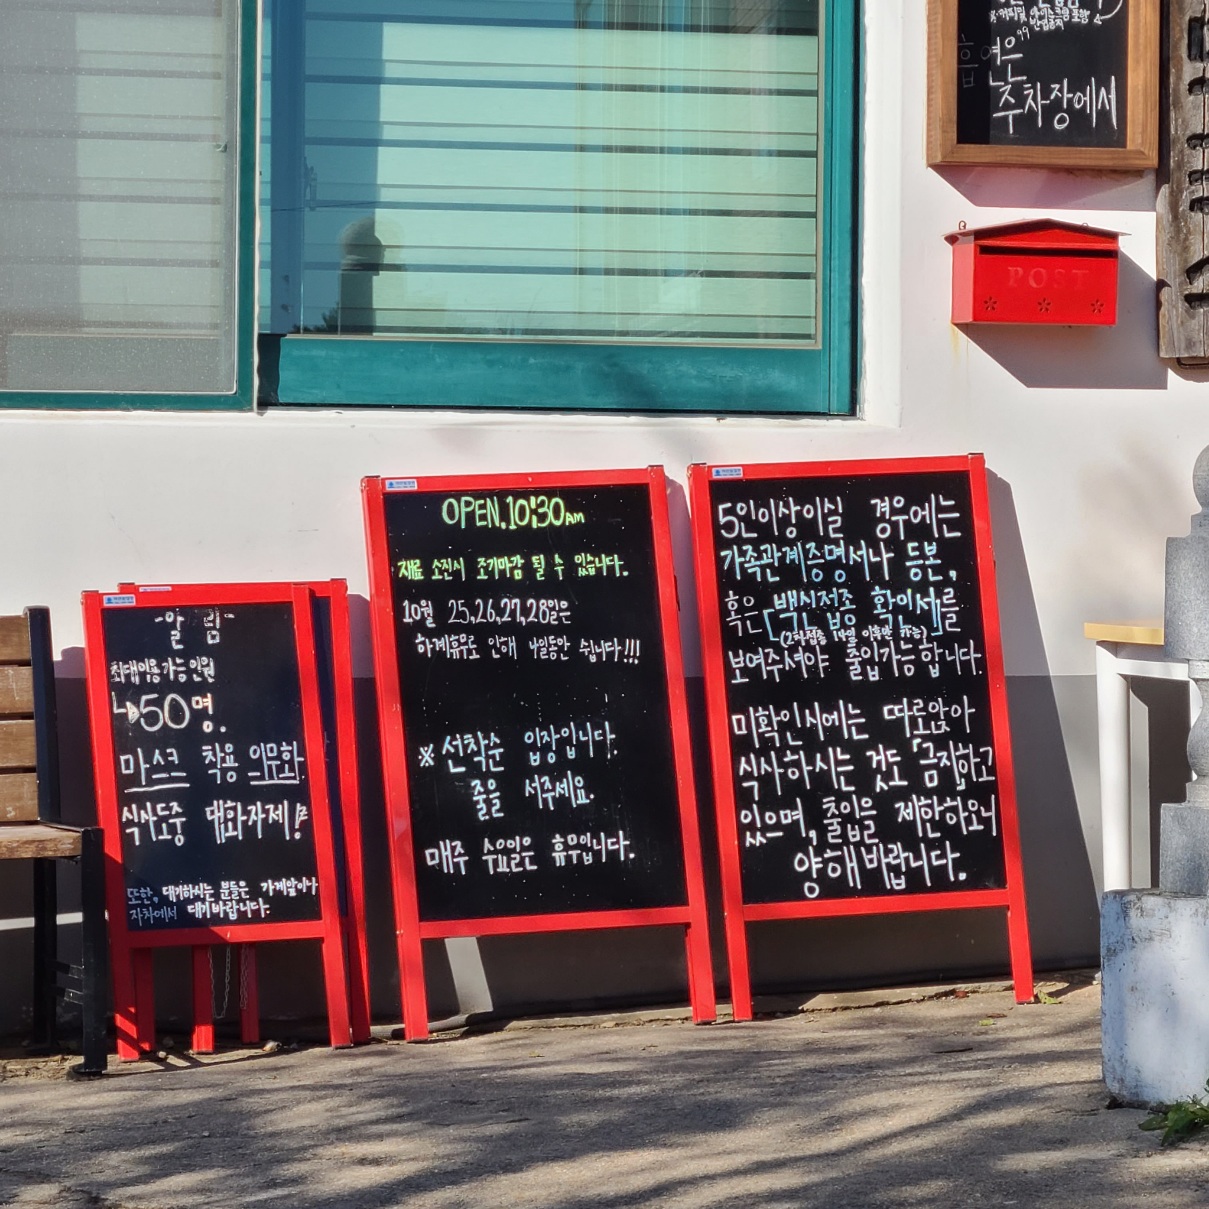 흡연은
주차장에서
POST
-알 림-
최대이용가능인원
↳50명.
마스크 착용 의무화
식사도중 대화자제!
또한, 대기하시는 분들은 가게앞이나
자차에서 대기바랍니다.
OPEN.10:30AM
재료 소진시 조기마감 될 수 있습니다.
10월 25,26,27,28일은
하계휴무로 인해 4일동안 쉽니다!!!
※ 선착순 입장입니다.
줄을 서주세요.
매주 수요일은 휴무입니다.
5인이상이실 경우에는
가족관계증명서나 등본,
혹은 [백신접종 확인서]를
(2차접종 14일 이후만 가능)
보여주셔야 출입가능합니다.
미확인시에는 따로앉아
식사하시는 것도 「금지」하고
있으며, 출입을 제한하오니
양해바랍니다.